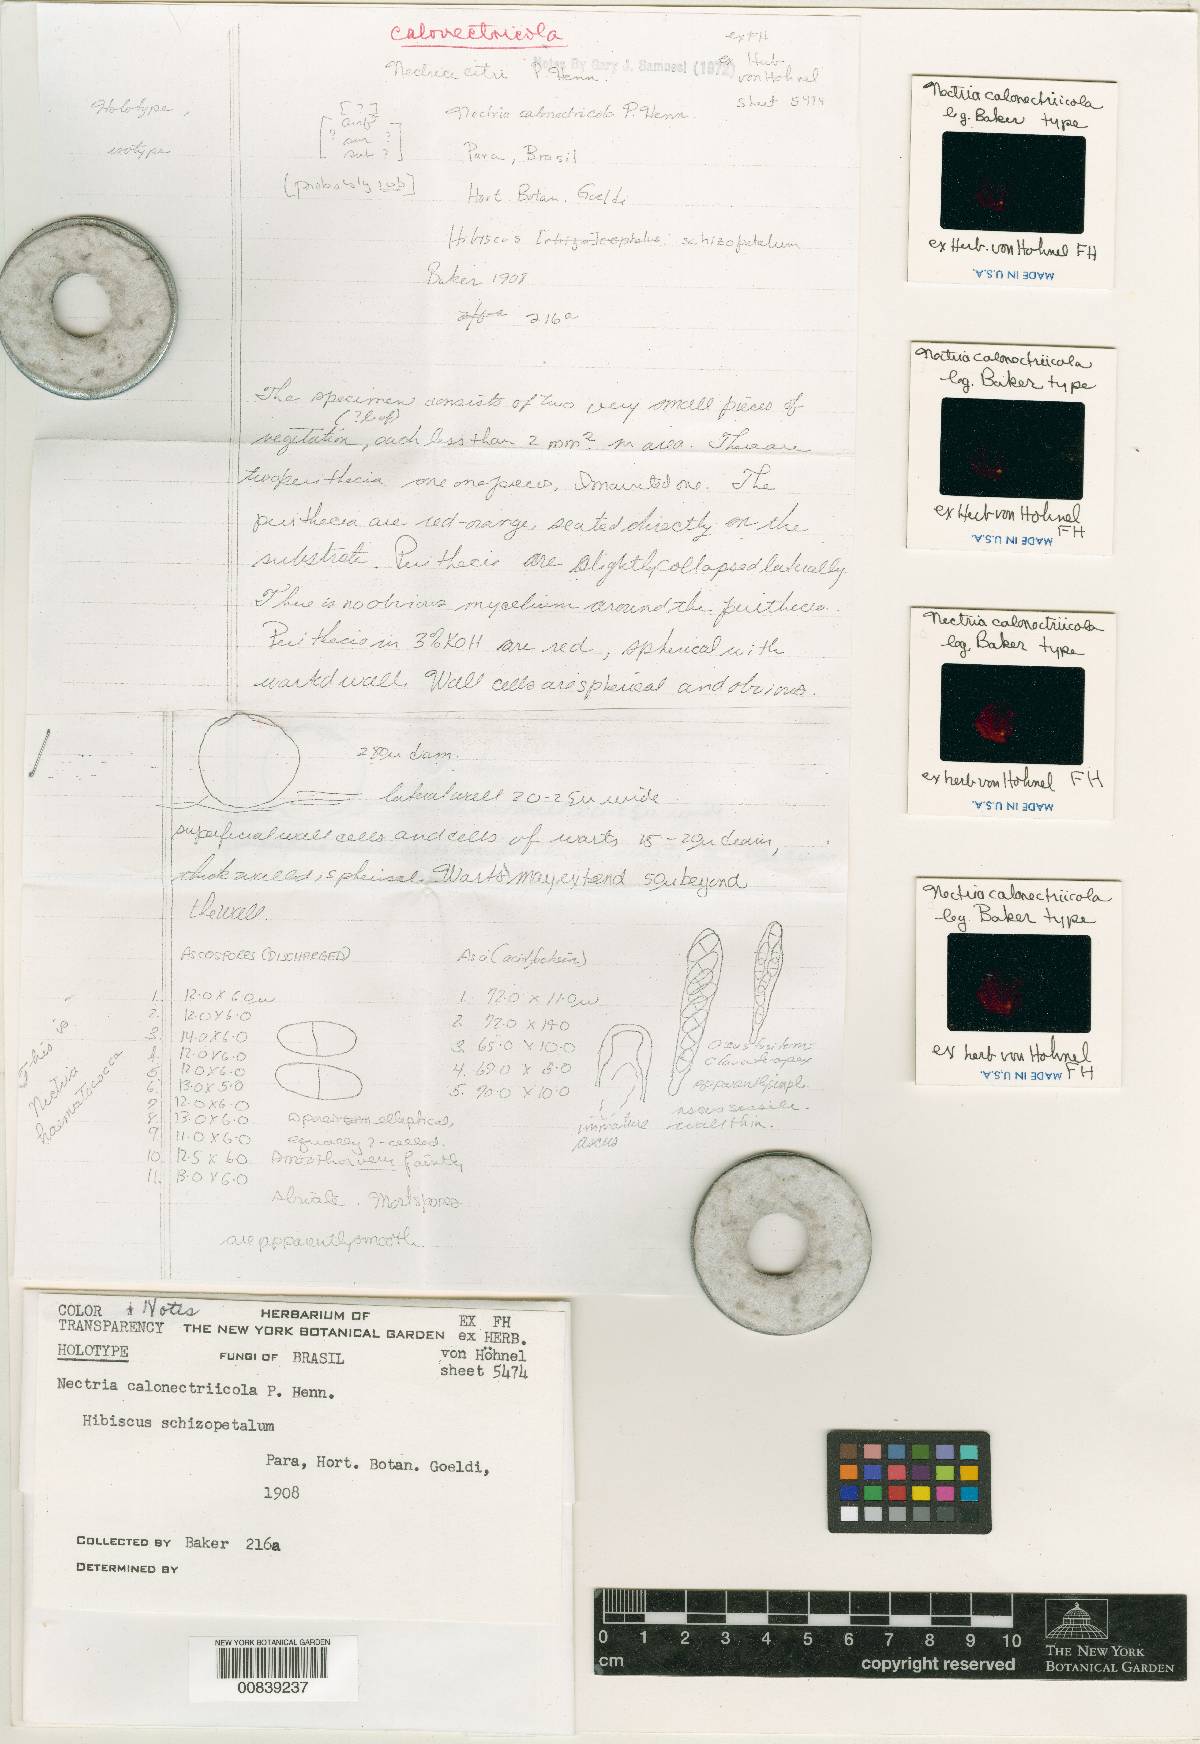 calonectricola
Nectria citri P. Henn.
Notes By Gary J. Samuel (1972)
ex FH
ex Herb.
von Hohnel
sheet 5474
Holotype,
isotype
[?]
? ?
sub ?
[probably sub]
Nectria calonectricola P. Henn.
Para, Brasil
Hort. Botan. Goeldi
Hibiscus schizopetalum
Baker 1908
216a
The specimen consists of two very small pieces of
(? leaf)
vegetation, each less than 2 mm² in area. There are
two perithecia one one pieces, I mounted one. The
perithecia are red-orange, seated directly on the
substrate. Perithecia are slightly collapsed laterally.
There is no obvious mycelium around the perithecia.
Perithecia in 3% KOH are red, spherical with
warted wall. Wall cells are spherical and obvious.
280u diam.
lateral wall 20-25u wide
superficial wall cells and cells of warts 15-20u diam,
thick walled, spherical. Warts may extend 50u beyond
the wall.
ASCOSPORES (DISCHARGED)
1. 12.0 X 6.0u
2. 12.0 X 6.0
3. 14.0 X 6.0
4. 12.0 X 6.0
5. 12.0 X 6.0
6. 13.0 X 5.0
7. 12.0 X 6.0
8. 13.0 X 6.0
9. 11.0 X 6.0
10. 12.5 X 6.0
11. 13.0 X 6.0
Asci (acid fuchsin)
1. 72.0 X 11.0u
2. 72.0 X 14.0
3. 65.0 X 10.0
4. 69.0 X 8.0
5. 70.0 X 10.0
This is
Nectria
haematococca
elliptical,
equally 2-celled.
Smooth or very faintly
striate. Most spores
are apparently smooth
immature
ascus
apex
simple.
wall thin.
COLOR + Notes
TRANSPARENCY
HOLOTYPE
HERBARIUM OF
THE NEW YORK BOTANICAL GARDEN
FUNGI OF BRASIL
EX FH
ex HERB.
von Höhnel
sheet 5474
Nectria calonectriicola P. Henn.
Hibiscus schizopetalum
Para, Hort. Botan. Goeldi,
1908
COLLECTED BY Baker 216a
DETERMINED BY
NEW YORK BOTANICAL GARDEN
00839237
Nectria calonectriicola
leg. Baker type
ex Herb. von Hohnel FH
MADE IN U.S.A.
Nectria calonectriicola
leg. Baker type
ex Herb von Hohnel
FH
MADE IN U.S.A.
Nectria calonectriicola
leg. Baker type
ex herb von Hohnel FH
MADE IN U.S.A.
Nectria calonectriicola
leg. Baker type
ex herb von Hohnel
FH
MADE IN U.S.A.
0 1 2 3 4 5 6 7 8 9 10
cm
copyright reserved
THE NEW YORK
BOTANICAL GARDEN